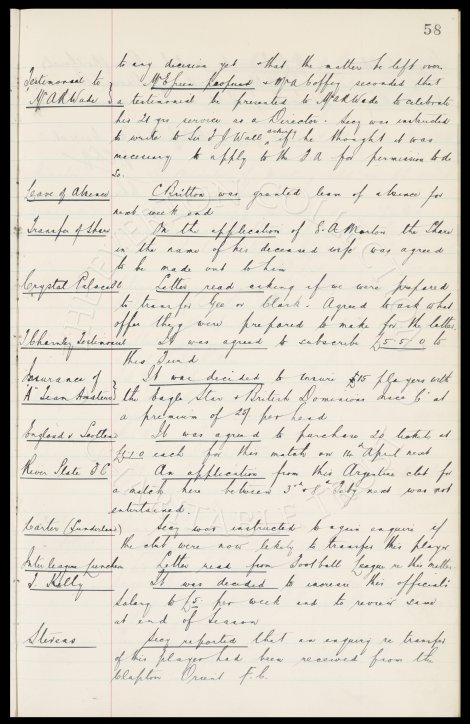 58
to any decision yet & that the matter be left over
Testimonial to Mr E Green proposed & Mr A Coffey seconded that
Mr A R Wade a testimonial be presented to Mr A R Wade to celebrate
his 21 yrs service as a Director. Secy was instructed
to write to Sir F J Wall asking if he thought it was
necessary to apply to the F A for permission to do
so.
Leave of Absence C Britton was granted leave of absence for
next week end
Transfer of Share On the application of S. A Morton the Share
in the name of his deceased wife was agreed
to be made out to him
Crystal Palace FC Letter read asking if we were prepared
to transfer Gee or Clark. Agreed to ask what
offer they were prepared to make for the latter
J Charnley Testimonial It was agreed to subscribe £5 5 0 to
this Fund
Insurance of It was decided to insure 15 players with
"A" Team Amateurs the Eagle Star & British Dominions Ince Co at
a premium of 25/ per head
England v Scotland It was agreed to purchase 20 tickets at
10 each for this match on 14th April next
River Plate F C An application from this Argentine club for
a match here between 3rd & 8th July next was not
entertained.
Carter (Sunderland) Secy was instructed to again enquire if
the club were now likely to transfer this player
Inter league function Letter read from Football League re this matter
J. Kelly It was decided to increase this officials
Salary to £5 per week and to review same
at end of season
Stevens Secy reported that an enquiry re transfer
of this player had been received from the
Clapton Orient F.C.